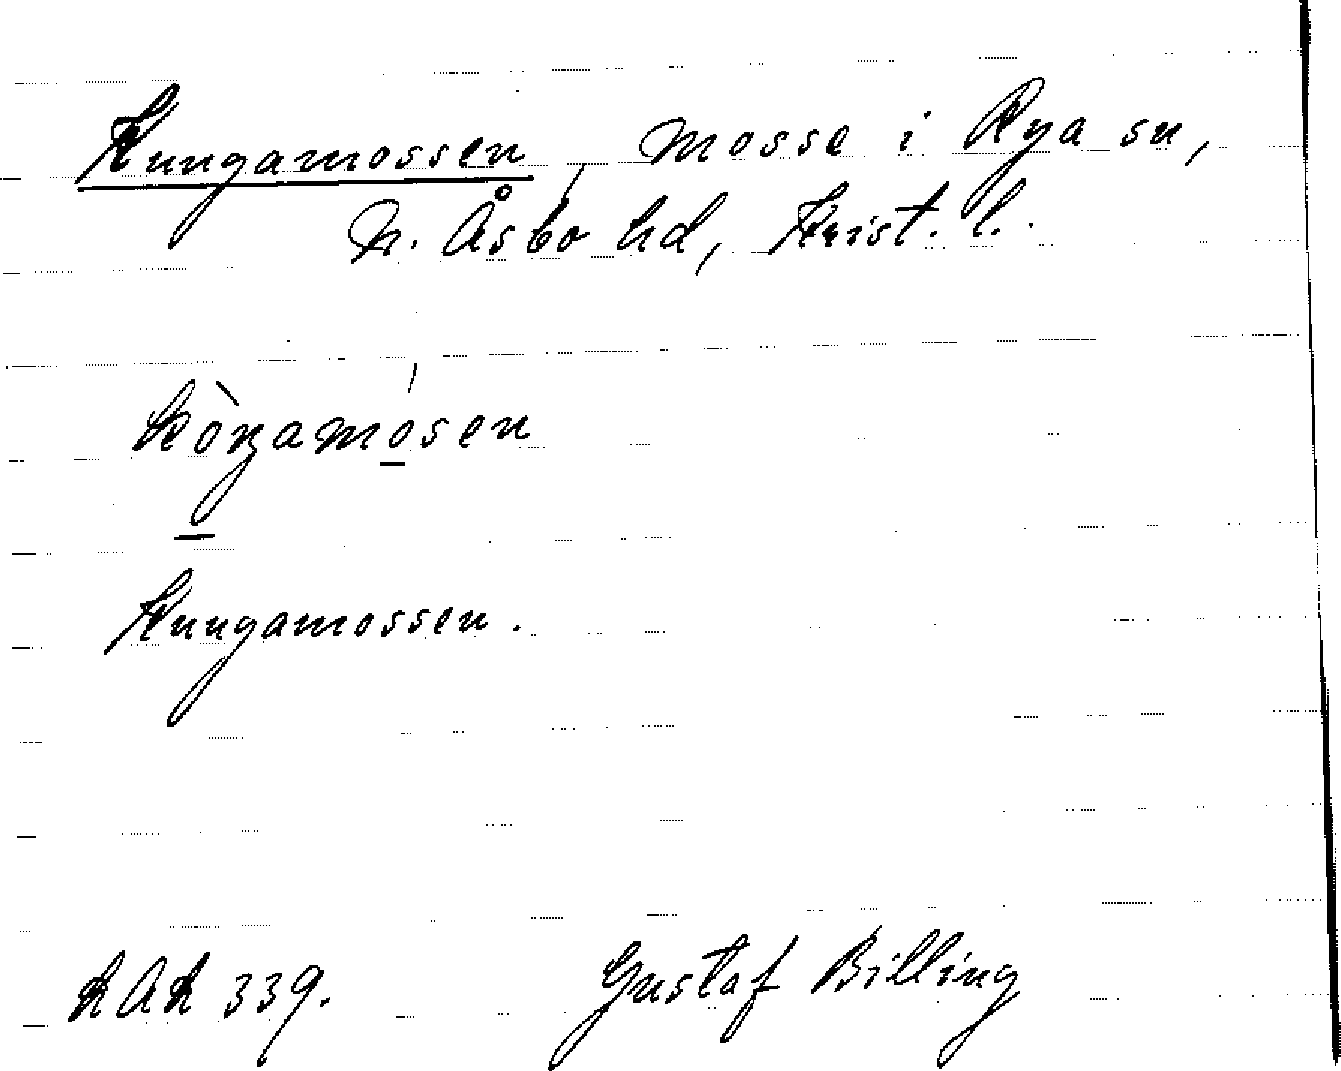 Kungamossen, mosse i Rya sn,
N. Åsbo hd, Krist. l.
kòŋamósen
Kungamossen.
KAK 339. Gustaf Billing